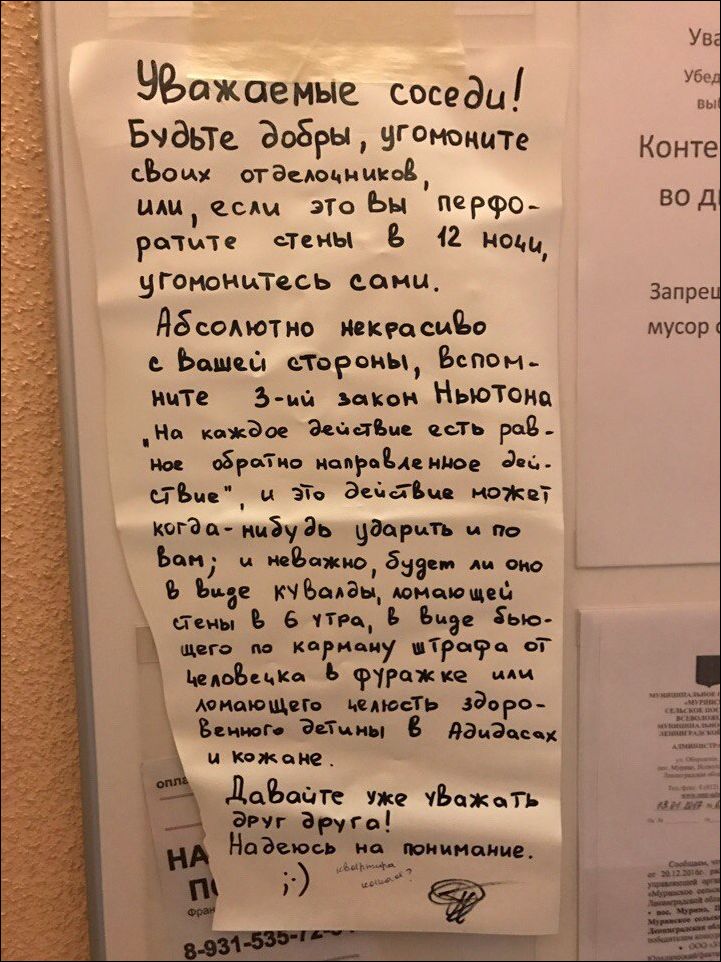 Уважаемые соседи!
Будьте добры, угомоните
своих отделочников,
или, если это вы перфо-
ратите стены в 12 ночи,
угомонитесь сами.
Абсолютно некрасиво
с Вашей стороны, вспом-
ните 3-ий закон Ньютона
„На каждое действие есть рав-
ное обратно направленное дей-
ствие", и это действие может
когда-нибудь ударить и по
вам; и неважно, будет ли оно
в виде кувалды, ломающей
стены в 6 утра, в виде бью-
щего по карману штрафа от
человечка в фуражке или
ломающего челюсть здоро-
венного детины в Адидасах
и кожане.
Давайте уже уважать
друг друга!
Надеюсь на понимание.
;-)
квартира
какая?
Ува
Убед
вы
Конте
во д
Запрещ
мусор с
опла
НА
П
Фран
8-931-535-72-
МУНИЦИПАЛЬНОЕ
«МУРИНС
СЕЛЬСКОЕ ПОС
ВСЕВОЛОЖ
МУНИЦИПАЛЬНО
ЛЕНИНГРАДСКОЙ
АДМИНИСТР
Сообщаем, ч
от 20.12.2016г. ра